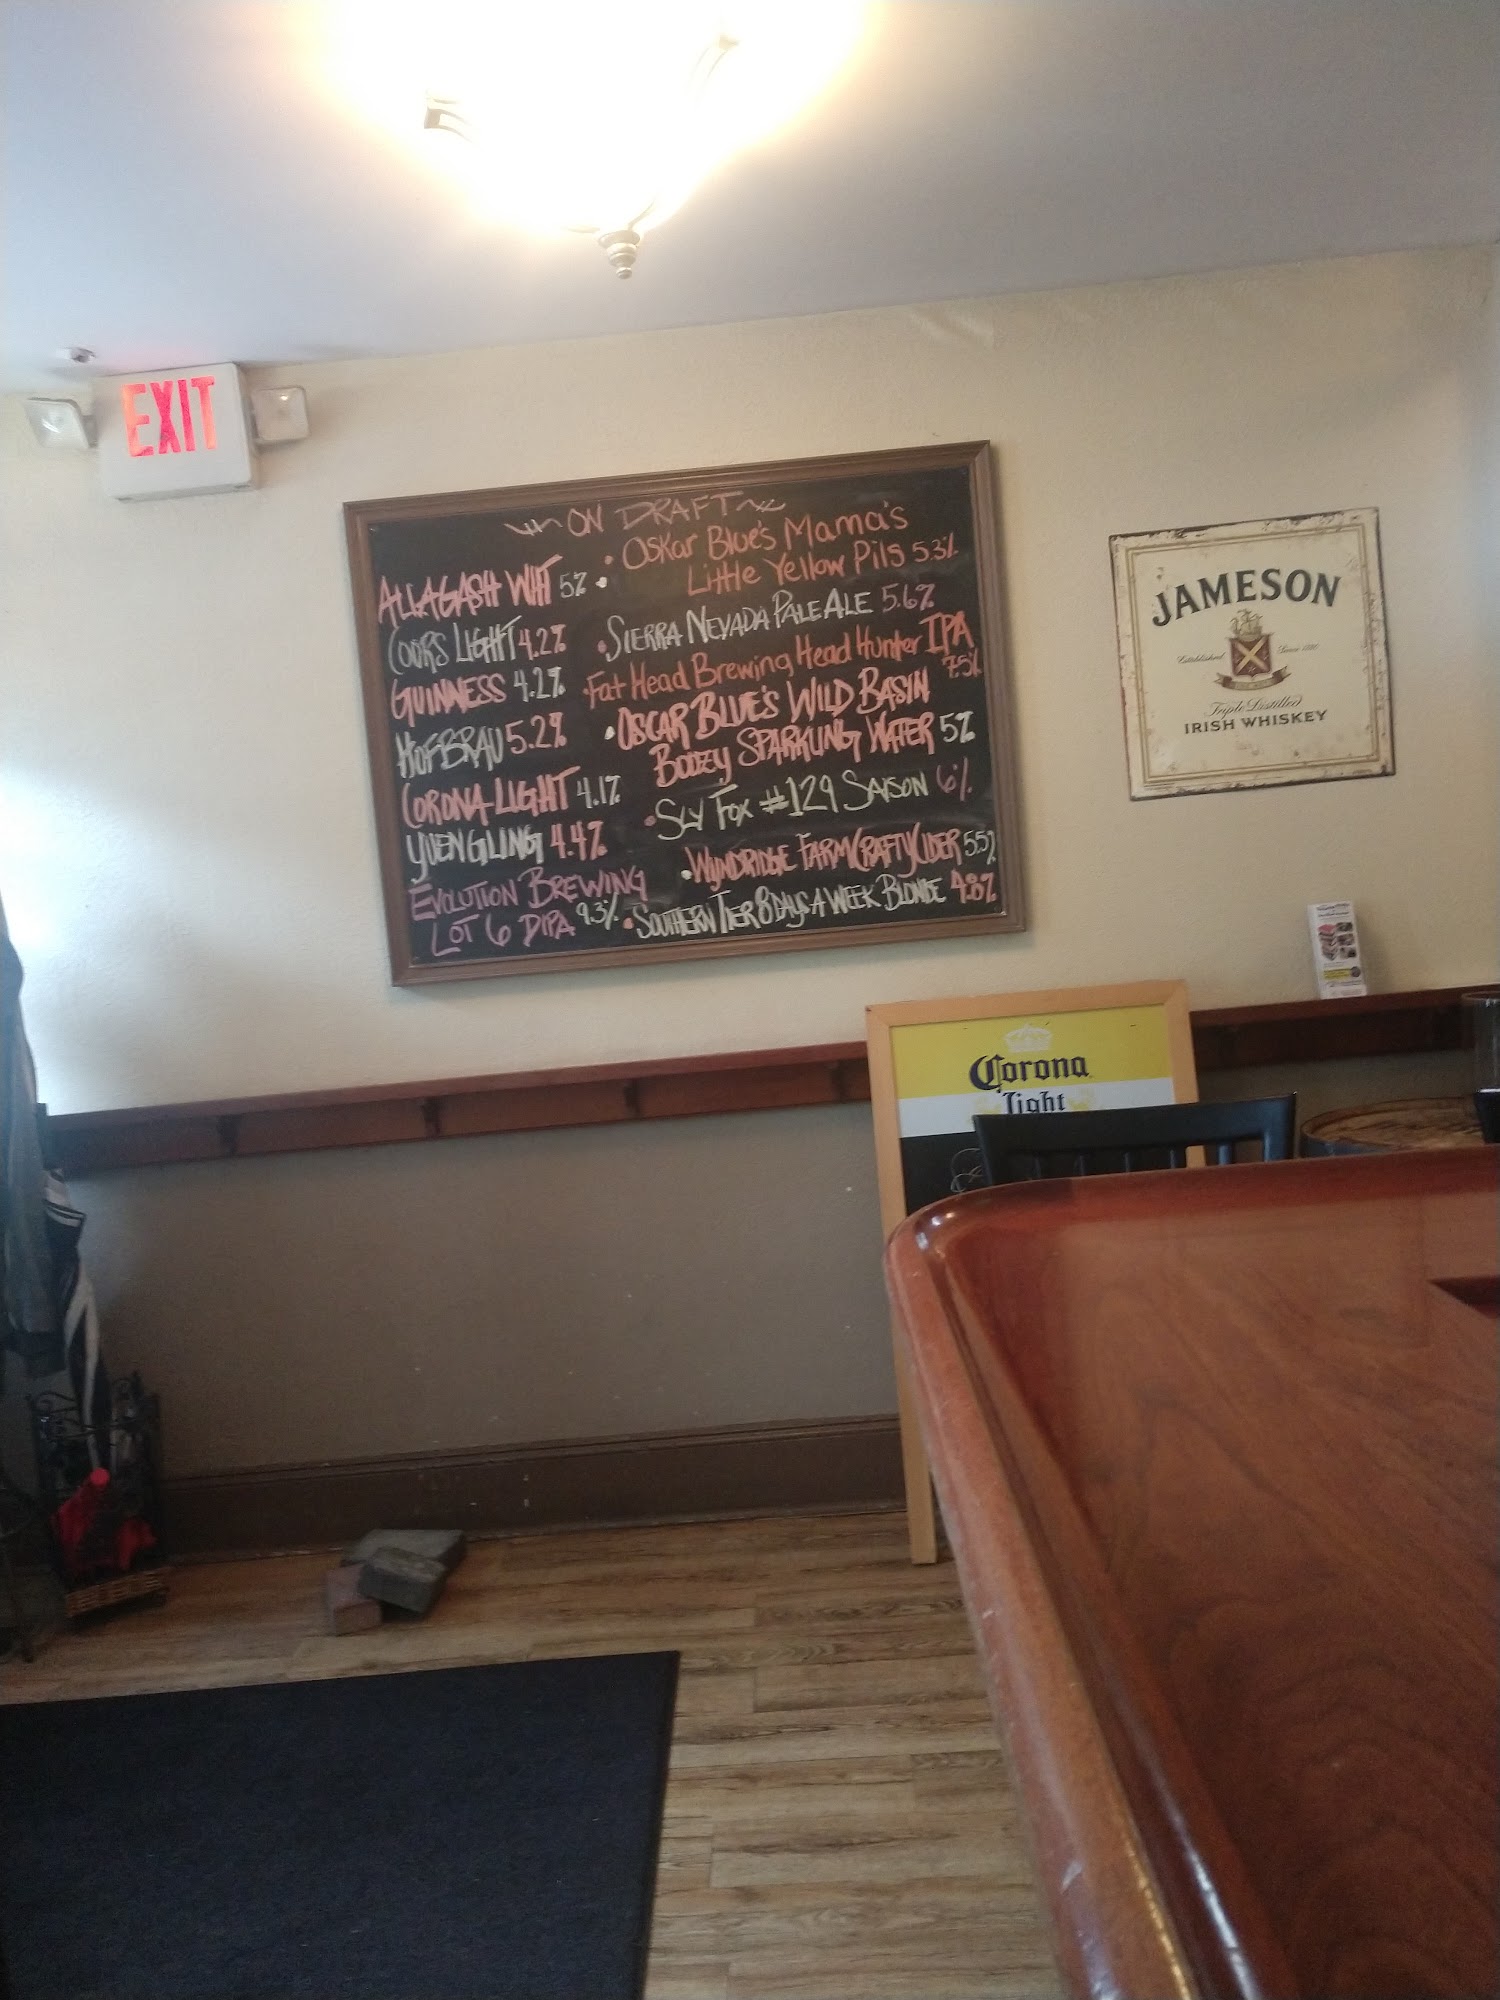 EXIT
ON DRAFT
ALLAGASH WHIT 5%
COORS LIGHT 4.2%
GUINNESS 4.2%
HOFBRAU 5.2%
CORONA LIGHT 4.1%
YUENGLING 4.4%
EVOLUTION BREWING
LOT 6 DIPA 9.3%
• Oskar Blue's Mama's
Little Yellow Pils 5.3%
• SIERRA NEVADA PALE ALE 5.6%
• Fat Head Brewing Head Hunter IPA
7.5%
• OSCAR BLUE'S WILD BASIN
BOOZY SPARKLING WATER 5%
• SLY FOX #129 SAISON 6%
• WYNDRIDGE FARM CRAFTY CIDER 5.5%
• SOUTHERN TIER 8 DAYS A WEEK BLONDE 4.8%
JAMESON
Established Since 1780
Triple Distilled
IRISH WHISKEY
Corona
Light